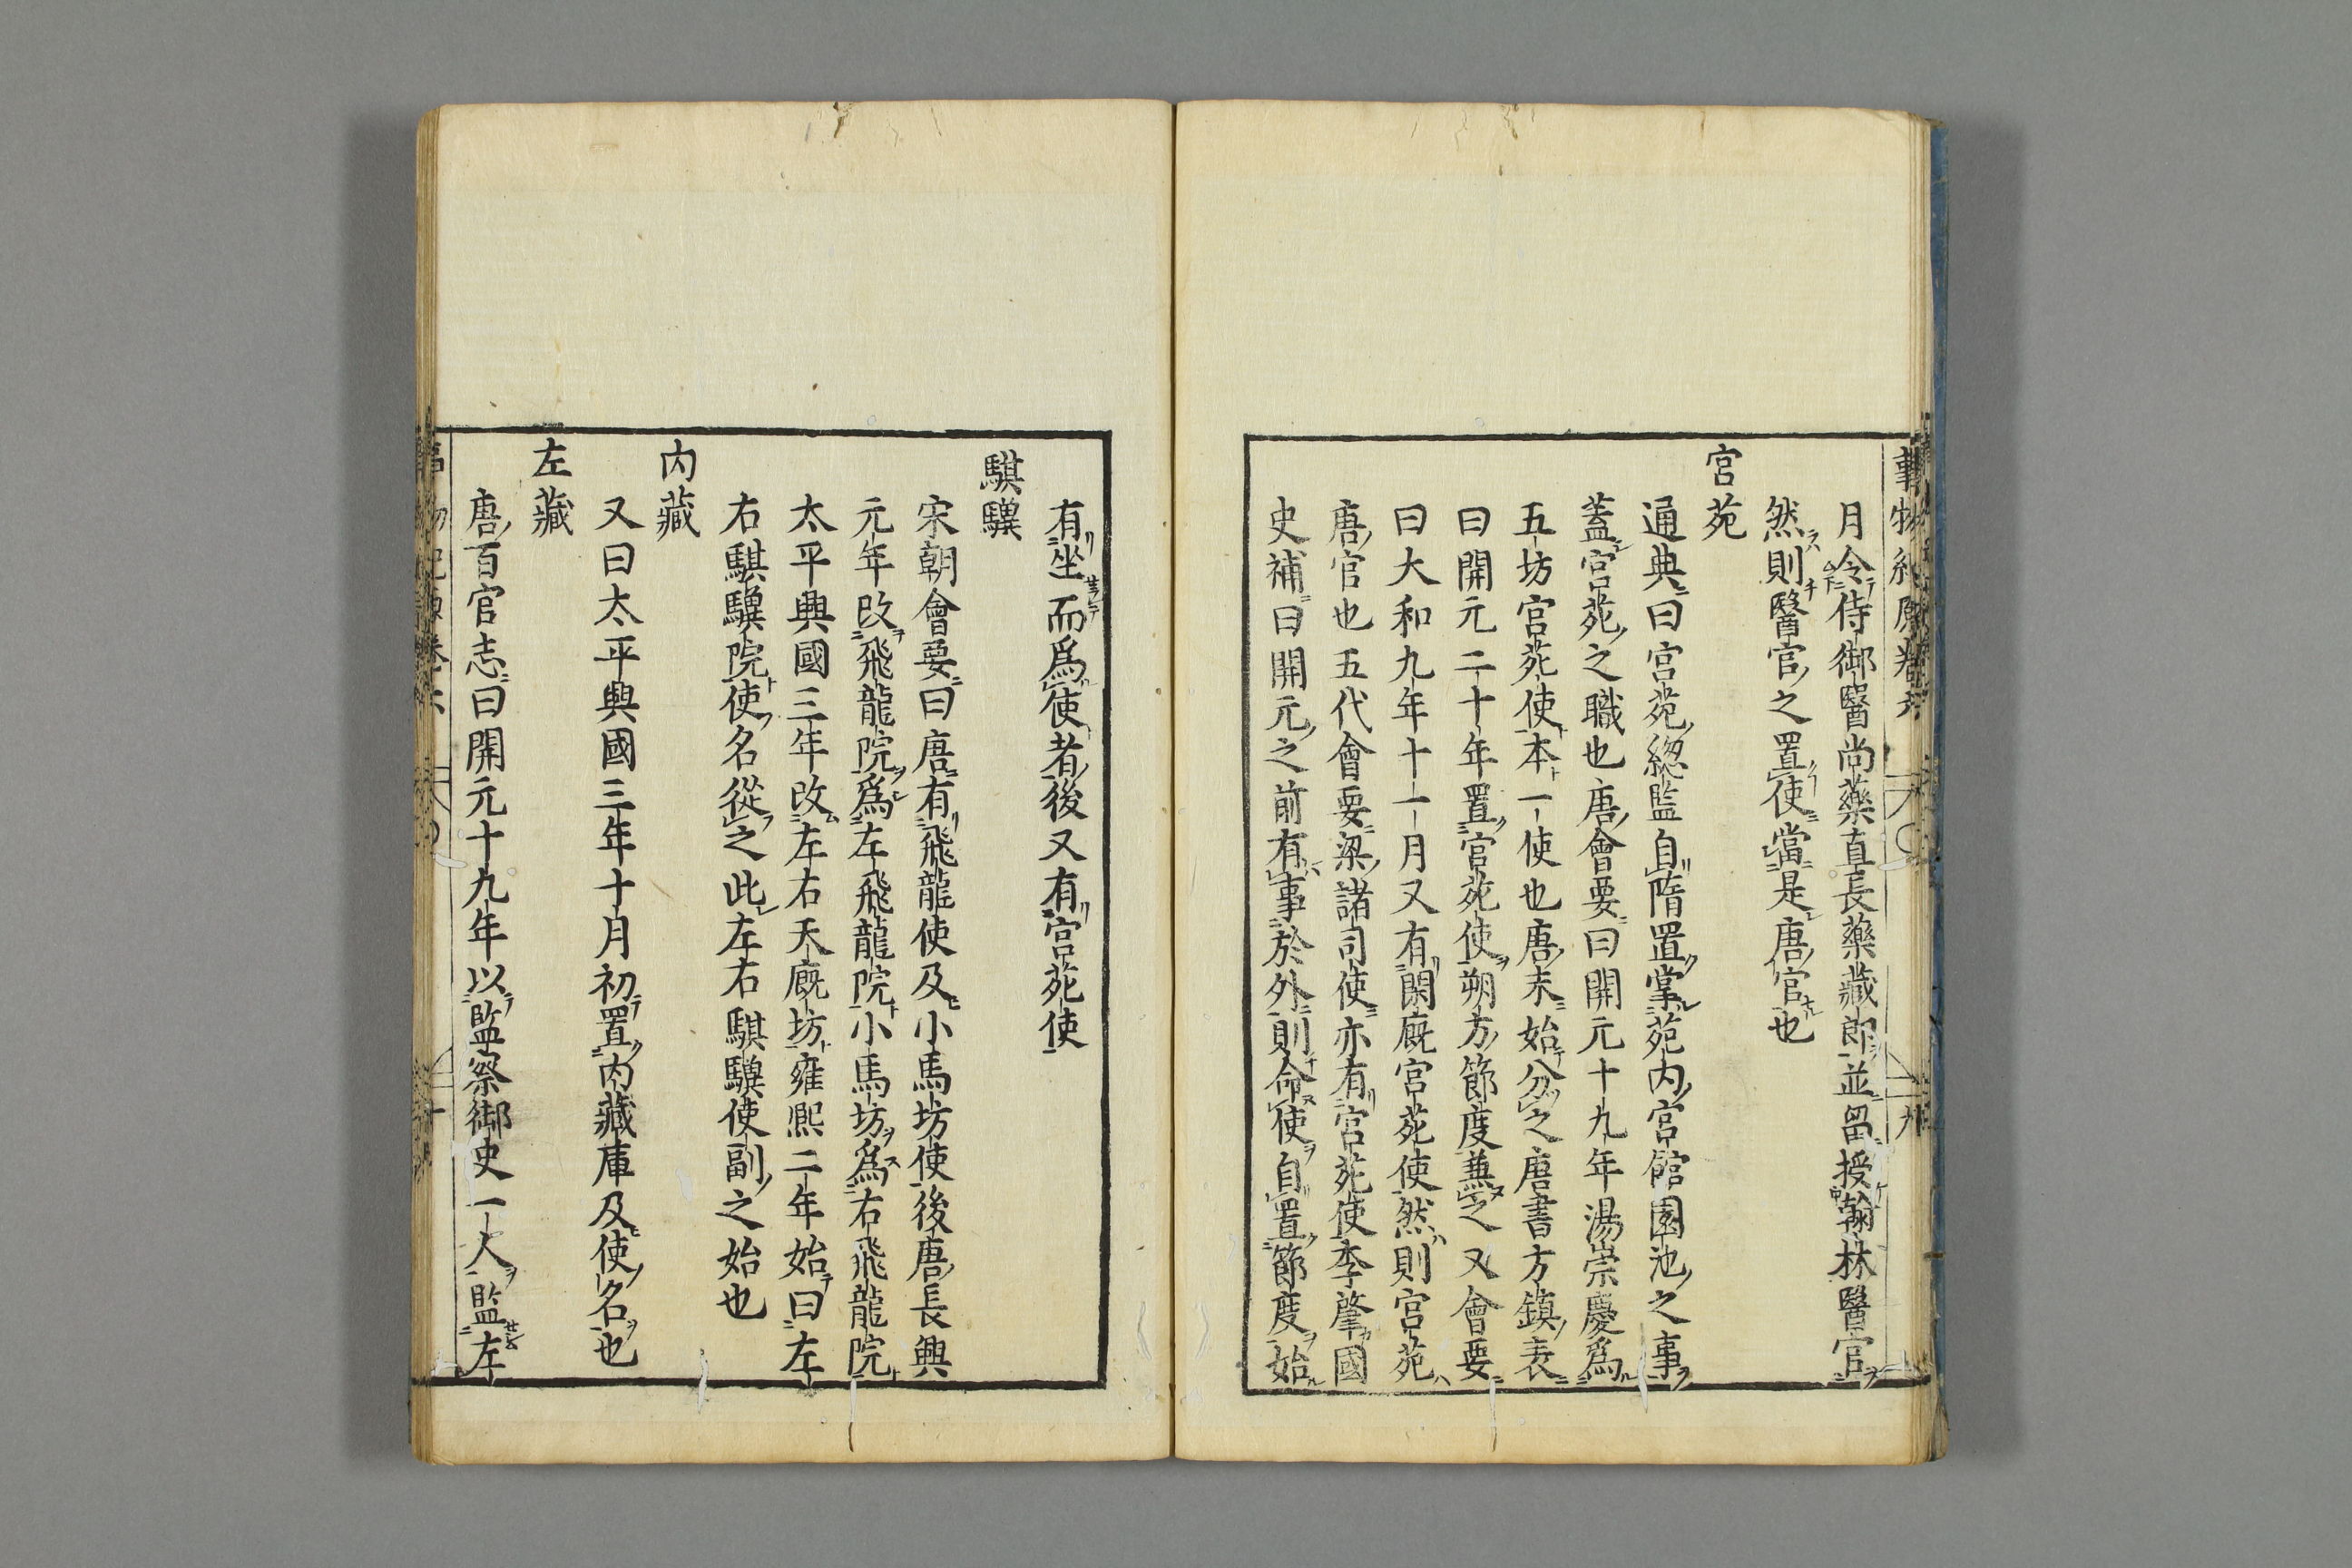 事物紀原卷六
月令侍御醫尚藥直長藥藏郎並畱授翰林醫官
然則醫官之置使當是唐官也
宮苑
通典曰宮苑緫監自隋置掌苑内宮館園池之事
蓋宮苑之職也唐會要曰開元十九年湯崇慶爲
五坊宮苑使本一使也唐末始分之唐書方鎮表
曰開元二十年置宮苑使朔方節度兼之又會要
曰大和九年十一月又有閑廐宮苑使然則宮苑
唐官也五代會要梁諸司使亦有宮苑使李肇國
史補曰開元之前有事於外則命使自置節度始
有坐而爲使者後又有宮苑使
騏驥
宋朝會要曰唐有飛龍使及小馬坊使後唐長興
元年改飛龍院爲左飛龍院小馬坊爲右飛龍院
太平興國三年改左右天廐坊雍熙二年始曰左
右騏驥院使名從之此左右騏驥使副之始也
内藏
又曰太平興國三年十月初置内藏庫及使名也
左藏
唐百官志曰開元十九年以監察御史一人監左